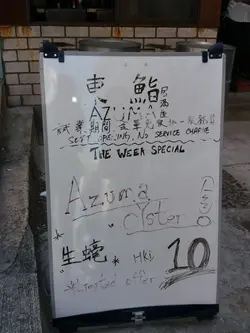 東 鮨
AZUMA
試業期間
SOFT OPENING, NO SERVICE CHARGE
THE WEEK SPECIAL
Azuma
Oyster
生蠔 HK$ 10
*Limited offer